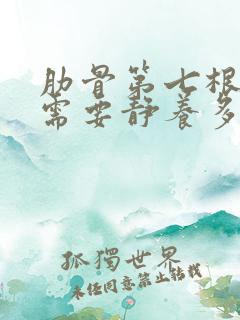 肋骨第七根
需要静养多
孤獨世界
未经同意禁止转载